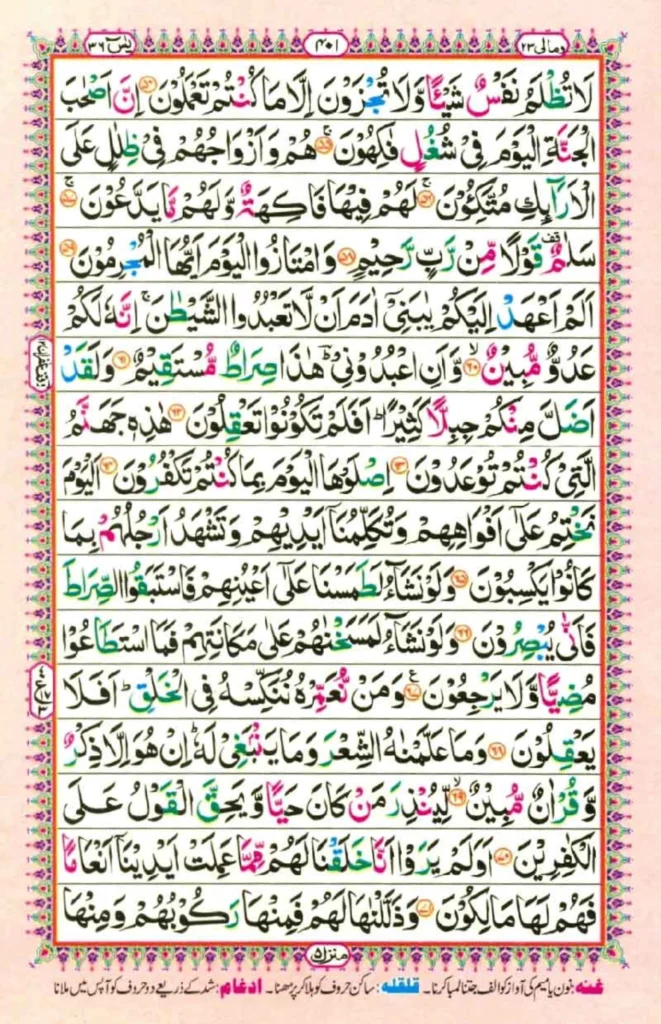 ومالی ٢٣
٤٠١
یٰسٓ ٣٦
لَا تُظْلَمُ نَفْسٌ شَيْـًٔا وَّلَا تُجْزَوْنَ اِلَّا مَا كُنْتُمْ تَعْمَلُوْنَ ﴿٥٤﴾ اِنَّ اَصْحٰبَ
الْجَنَّةِ الْيَوْمَ فِیْ شُغُلٍ فٰكِهُوْنَ ﴿٥٥﴾ هُمْ وَاَزْوَاجُهُمْ فِیْ ظِلٰلٍ عَلَی
الْاَرَآىِٕكِ مُتَّكِـُٔوْنَ ﴿٥٦﴾ لَهُمْ فِیْهَا فَاكِهَةٌ وَّلَهُمْ مَّا يَدَّعُوْنَ ﴿٥٧﴾
سَلٰمٌ ۫ قَوْلًا مِّنْ رَّبٍّ رَّحِیْمٍ ﴿٥٨﴾ وَامْتَازُوا الْيَوْمَ اَيُّهَا الْمُجْرِمُوْنَ ﴿٥٩﴾
اَلَمْ اَعْهَدْ اِلَيْكُمْ يٰبَنِیْۤ اٰدَمَ اَنْ لَّا تَعْبُدُوا الشَّيْطٰنَ ۚ اِنَّهٗ لَكُمْ
عَدُوٌّ مُّبِیْنٌ ﴿٦٠﴾ وَّاَنِ اعْبُدُوْنِیْ ؔؕ هٰذَا صِرَاطٌ مُّسْتَقِیْمٌ ﴿٦١﴾ وَلَقَدْ
اَضَلَّ مِنْكُمْ جِبِلًّا كَثِیْرًا ؕ اَفَلَمْ تَكُوْنُوْا تَعْقِلُوْنَ ﴿٦٢﴾ هٰذِهٖ جَهَنَّمُ
الَّتِیْ كُنْتُمْ تُوْعَدُوْنَ ﴿٦٣﴾ اِصْلَوْهَا الْيَوْمَ بِمَا كُنْتُمْ تَكْفُرُوْنَ ﴿٦٤﴾ اَلْيَوْمَ
نَخْتِمُ عَلٰۤی اَفْوَاهِهِمْ وَتُكَلِّمُنَاۤ اَيْدِيْهِمْ وَتَشْهَدُ اَرْجُلُهُمْ بِمَا
كَانُوْا يَكْسِبُوْنَ ﴿٦٥﴾ وَلَوْ نَشَآءُ لَطَمَسْنَا عَلٰۤی اَعْيُنِهِمْ فَاسْتَبَقُوا الصِّرَاطَ
فَاَنّٰی يُبْصِرُوْنَ ﴿٦٦﴾ وَلَوْ نَشَآءُ لَمَسَخْنٰهُمْ عَلٰی مَكَانَتِهِمْ فَمَا اسْتَطَاعُوْا
مُضِيًّا وَّلَا يَرْجِعُوْنَ ﴿٦٧﴾ وَمَنْ نُّعَمِّرْهُ نُنَكِّسْهُ فِی الْخَلْقِ ؕ اَفَلَا
يَعْقِلُوْنَ ﴿٦٨﴾ وَمَا عَلَّمْنٰهُ الشِّعْرَ وَمَا يَنْۢبَغِیْ لَهٗ ؕ اِنْ هُوَ اِلَّا ذِكْرٌ
وَّقُرْاٰنٌ مُّبِیْنٌ ﴿٦٩﴾ لِّيُنْذِرَ مَنْ كَانَ حَيًّا وَّيَحِقَّ الْقَوْلُ عَلَی
الْكٰفِرِيْنَ ﴿٧٠﴾ اَوَلَمْ يَرَوْا اَنَّا خَلَقْنَا لَهُمْ مِّمَّا عَمِلَتْ اَيْدِيْنَاۤ اَنْعَامًا
فَهُمْ لَهَا مٰلِكُوْنَ ﴿٧١﴾ وَذَلَّلْنٰهَا لَهُمْ فَمِنْهَا رَكُوْبُهُمْ وَمِنْهَا
منزل ٥
غنه: نون یا میم کی آواز کو الف جتنا لمبا کرنا۔ قلقله: ساکن حروف کو ہلا کر پڑھنا۔ ادغام: شد کے ذریعے دو حروف کو آپس میں ملانا